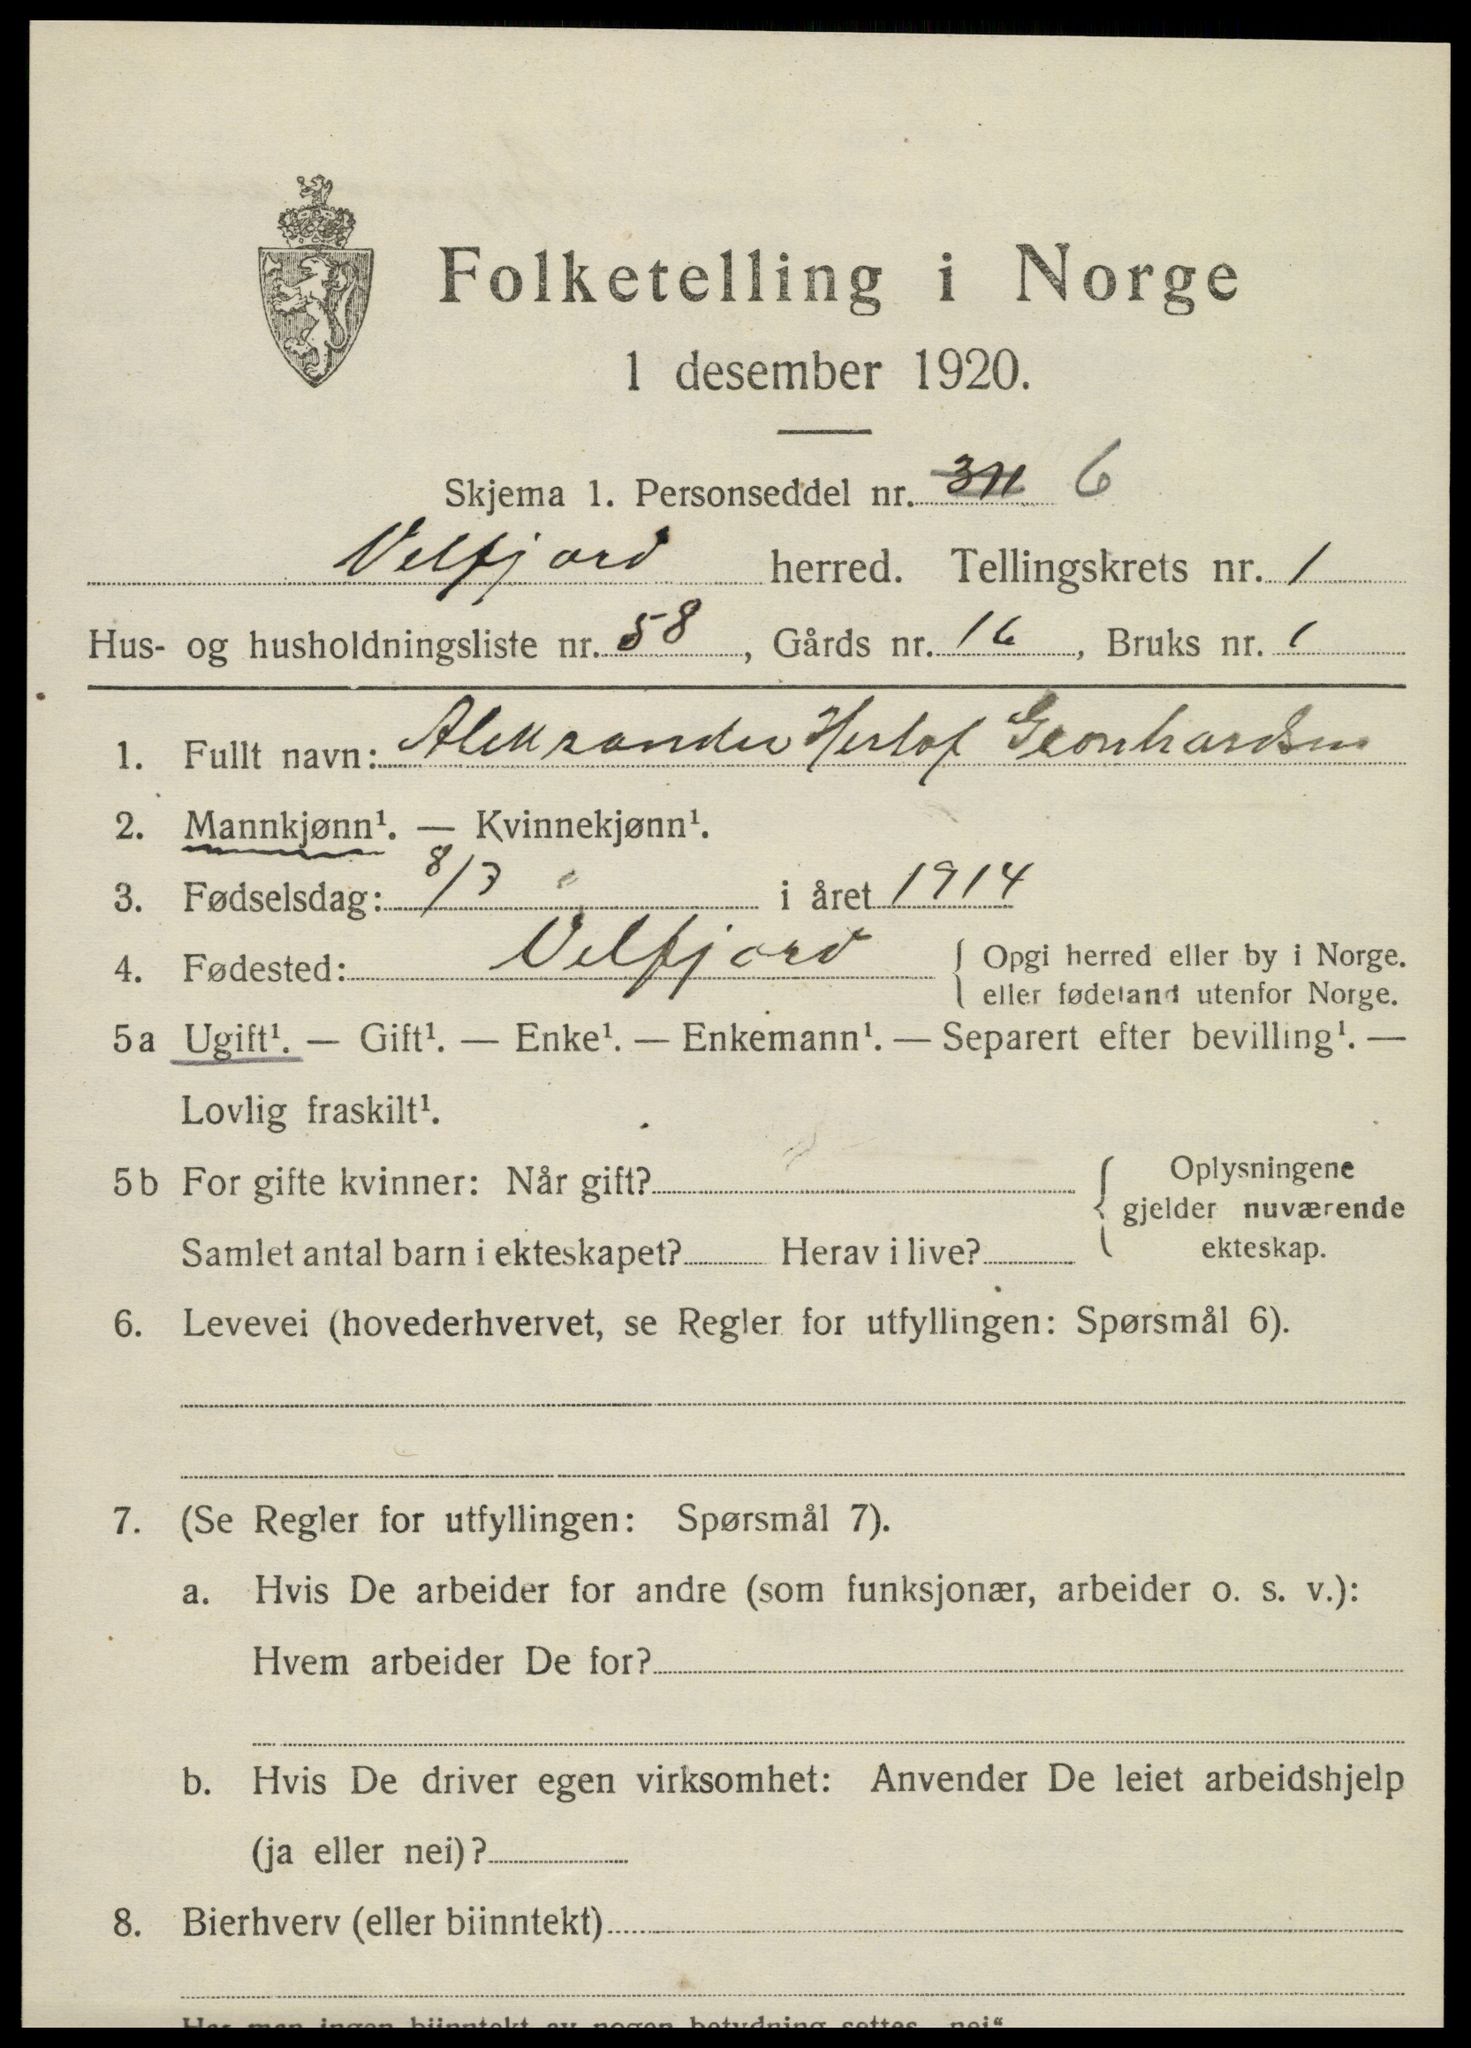 Folketelling i Norge
1 desember 1920.
Skjema 1. Personseddel nr. 311 6
Velfjord herred. Tellingskrets nr. 1
Hus- og husholdningsliste nr. 58, Gårds nr. 16, Bruks nr. 1
1. Fullt navn: Aleksander Herlof Leonhardsen
2. Mannkjønn¹. — Kvinnekjønn¹.
3. Fødselsdag: 8/3 i året 1914
4. Fødested: Velfjord { Opgi herred eller by i Norge.
eller fødeland utenfor Norge.
5a Ugift¹. — Gift¹. — Enke¹. — Enkemann¹. — Separert efter bevilling¹. —
Lovlig fraskilt¹.
5b For gifte kvinner: Når gift? { Oplysningene
gjelder nuværende
Samlet antal barn i ekteskapet? Herav i live? ekteskap.
6. Levevei (hovederhvervet, se Regler for utfyllingen: Spørsmål 6).
7. (Se Regler for utfyllingen: Spørsmål 7).
a. Hvis De arbeider for andre (som funksjonær, arbeider o. s. v.):
Hvem arbeider De for?
b. Hvis De driver egen virksomhet: Anvender De leiet arbeidshjelp
(ja eller nei)?
8. Bierhverv (eller biinntekt)
Har man ingen biinntekt av nogen betydning settes „nei“